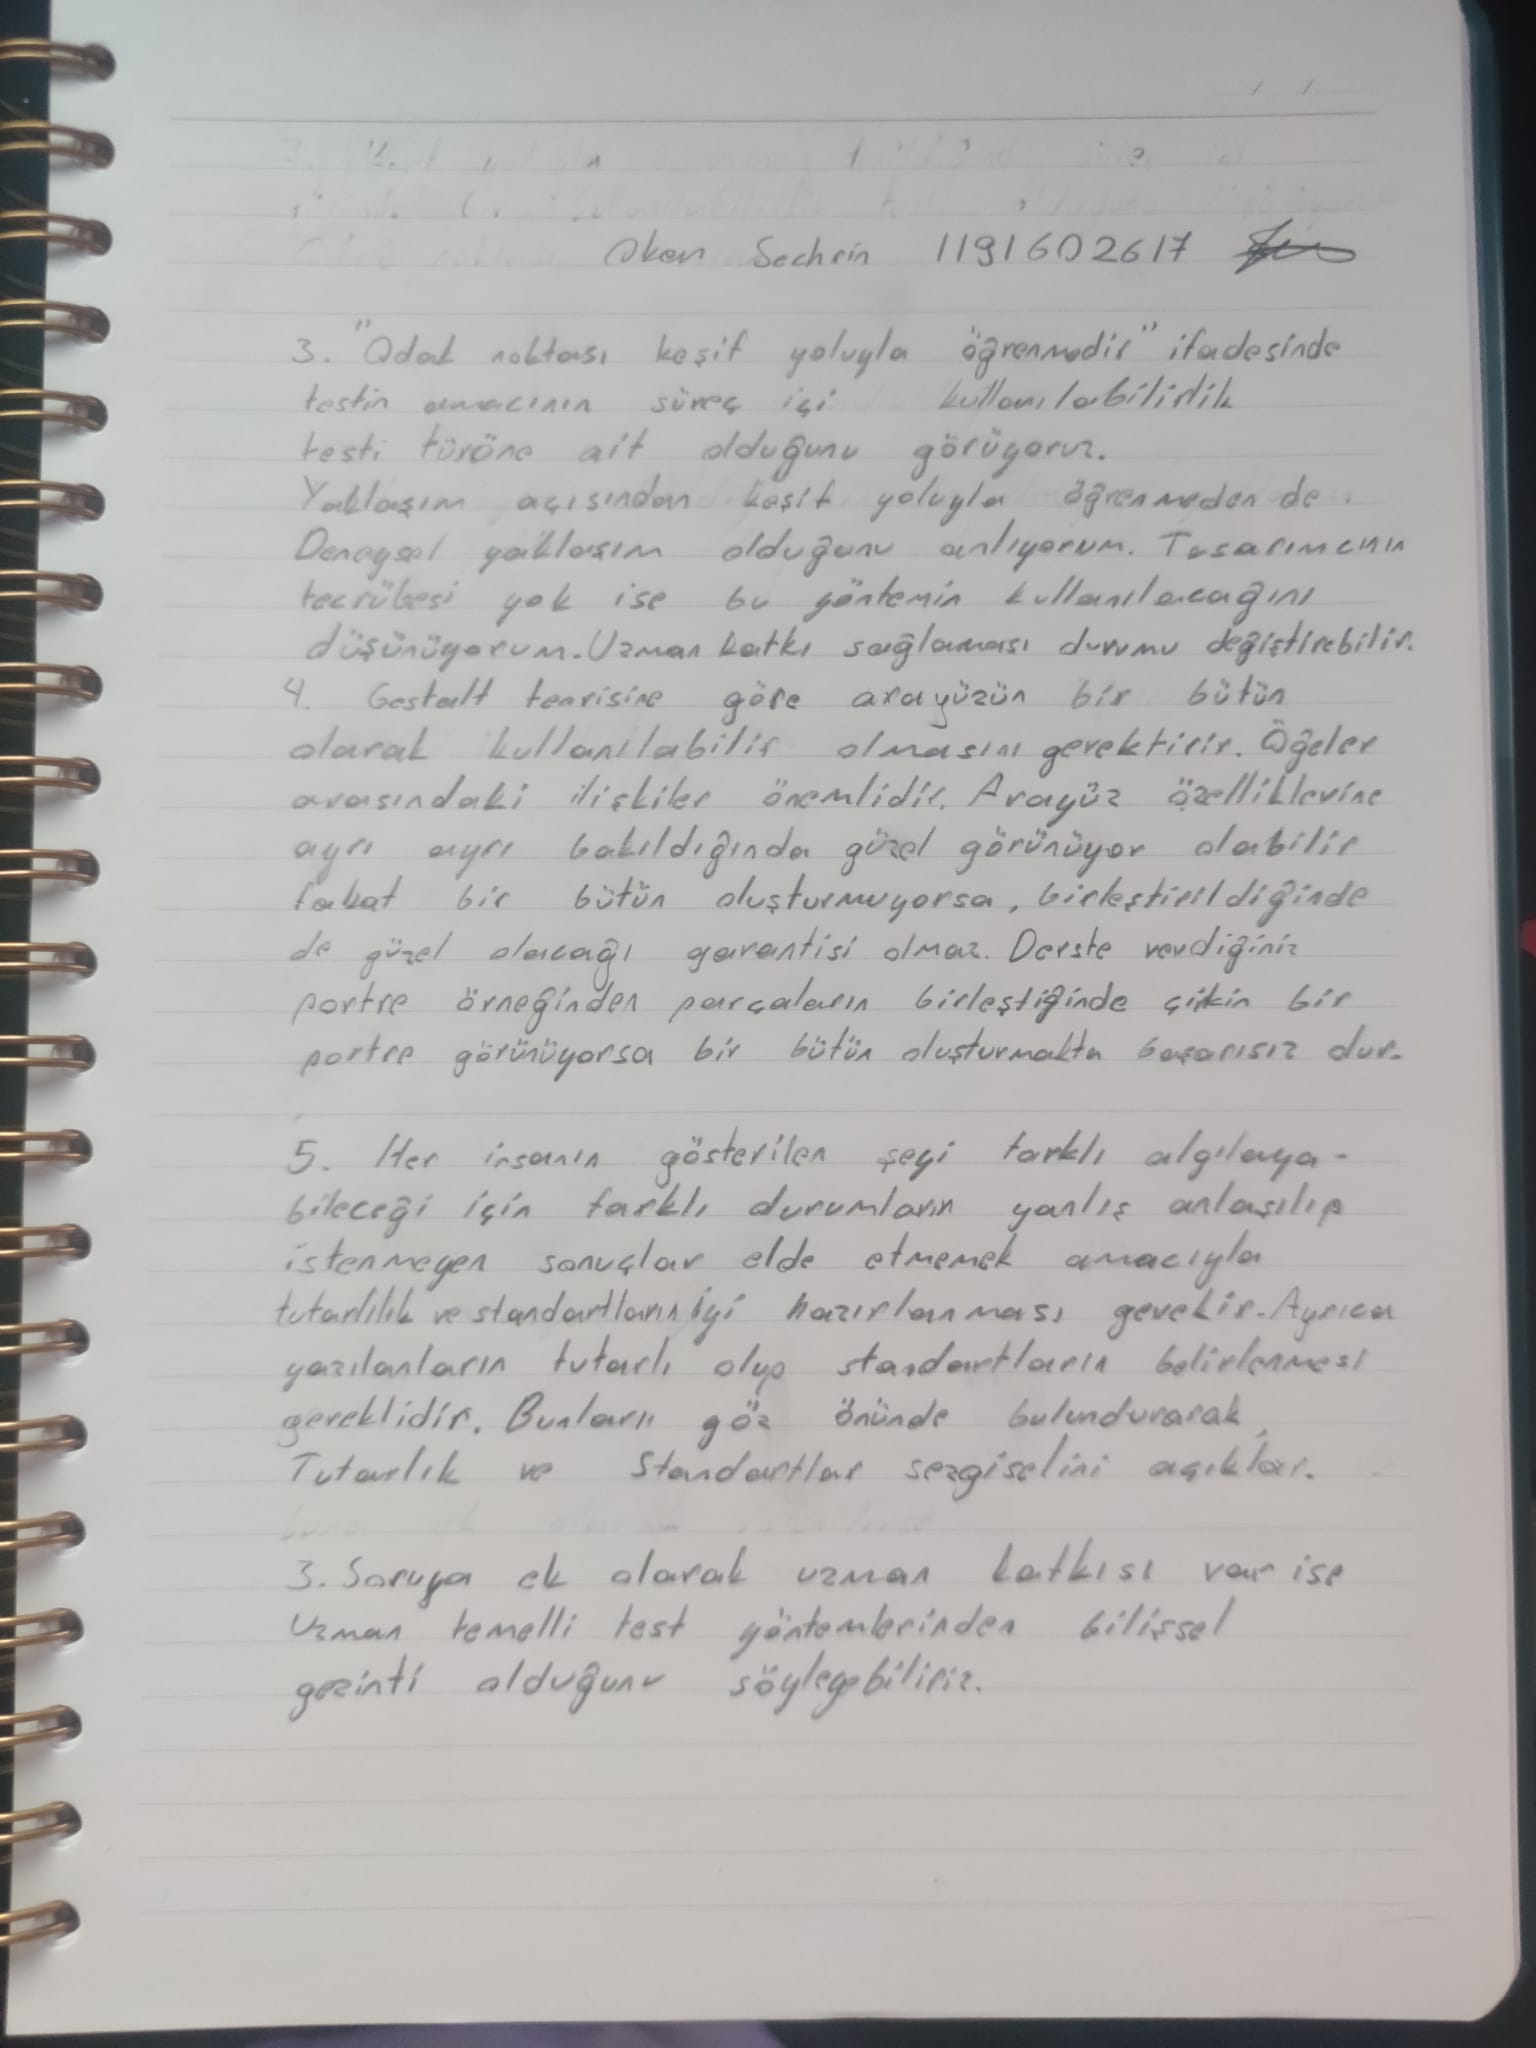 Okan Sechrin 1191602617
3. "Odak noktası keşif yoluyla öğrenmedir" ifadesinde
testin amacının süreç içi kullanılabilirlik
testi türüne ait olduğunu görüyoruz.
Yaklaşım açısından keşif yoluyla öğrenmeden de
Deneysel yaklaşım olduğunu anlıyorum. Tasarımcının
tecrübesi yok ise bu yöntemin kullanılacağını
düşünüyorum. Uzman katkı sağlaması durumu değiştirebilir.
4. Gestalt teorisine göre arayüzün bir bütün
olarak kullanılabilir olmasını gerektirir. Öğeler
arasındaki ilişkiler önemlidir. Arayüz özelliklerine
ayrı ayrı bakıldığında güzel görünüyor olabilir
fakat bir bütün oluşturmuyorsa, birleştirildiğinde
de güzel olacağı garantisi olmaz. Derste verdiğiniz
portre örneğinden parçaların birleştiğinde çirkin bir
portre görünüyorsa bir bütün oluşturmakta başarısız dur.
5. Her insanın gösterilen şeyi farklı algılaya-
bileceği için farklı durumların yanlış anlaşılıp
istenmeyen sonuçlar elde etmemek amacıyla
tutarlılık ve standartların iyi hazırlanması gerekir. Ayrıca
yazılanların tutarlı olup standartların belirlenmesi
gereklidir. Bunları göz önünde bulundurarak
Tutarlık ve Standartlar sezgiselini açıklar.
3. Soruya ek olarak uzman katkısı var ise
Uzman temelli test yöntemlerinden bilişsel
gezinti olduğunu söyleyebiliriz.